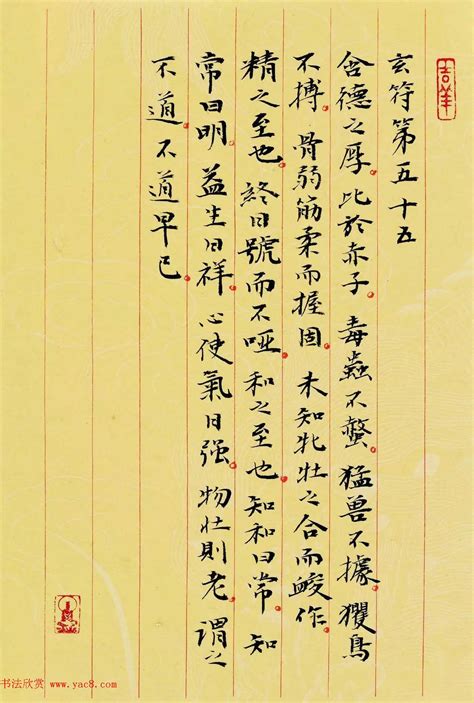 吉羊
玄符第五十五
含德之厚。比於赤子。毒蟲不螫。猛兽不據。玃鳥
不搏。骨弱筋柔而握固。未知牝牡之合而朘作。
精之至也。終日號而不哑。和之至也。知和曰常。知
常曰明。益生曰祥。心使氣曰强。物壮則老。謂之
不道。不道早已
书法欣赏 www.yac8.com